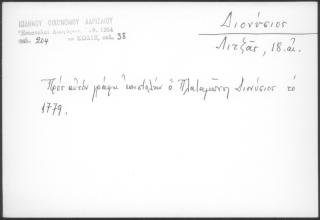 ΙΩΑΝΝΟΥ ΟΙΚΟΝΟΜΟΥ ΛΑΡΙΣΑΙΟΥ
1964
σελ. 204 το ΚΩΔΙΞ, σελ. 38
Διονύσιος
Λιτζᾶς, 18.αἰ.
Πρὸς αὐτὸν γράφει ἐπιστολὴν ὁ Πλαταμῶνος Διονύσιος τὸ
1779.